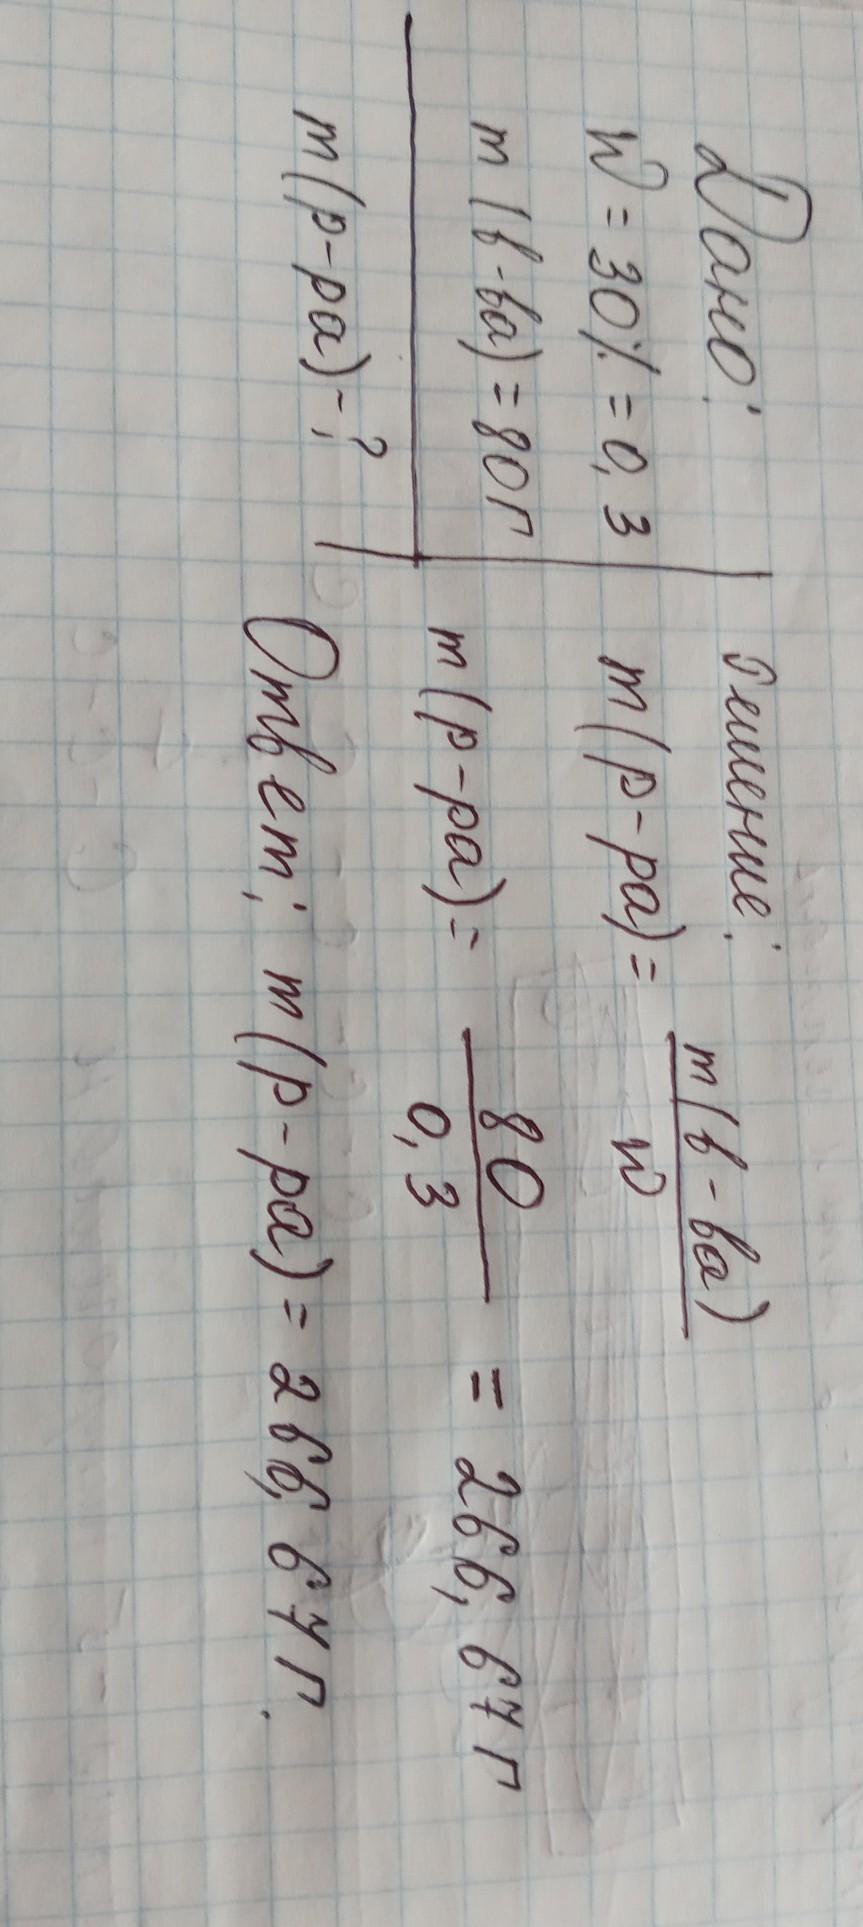 Дано:
W = 30% = 0,3
m (в-ва) = 80г
m (р-ра) - ?
Решение:
m (р-ра) = m (в-ва) / W
m (р-ра) = 80 / 0,3 = 266,67г
Ответ: m (р-ра) = 266,67г.